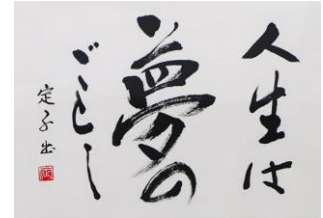 人生は
夢の
ごとし
定子出